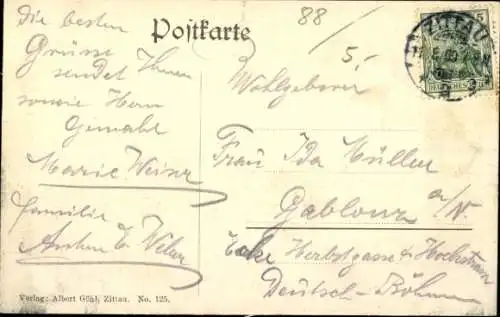 Postkarte
88
5.-
ZITTAU
5
DEUTSCHES REICH
Die besten
Grüsse
sendet Ihnen
sowie Herrn
Gemahl
Marie Weinz
Familie
Wohlgeboren
Frau Ida Müller
Gablonz a/N.
Ecke Herbstgasse & Hochstrasse
Deutsch-Böhmen
Verlag: Albert Gühl, Zittau. No. 125.